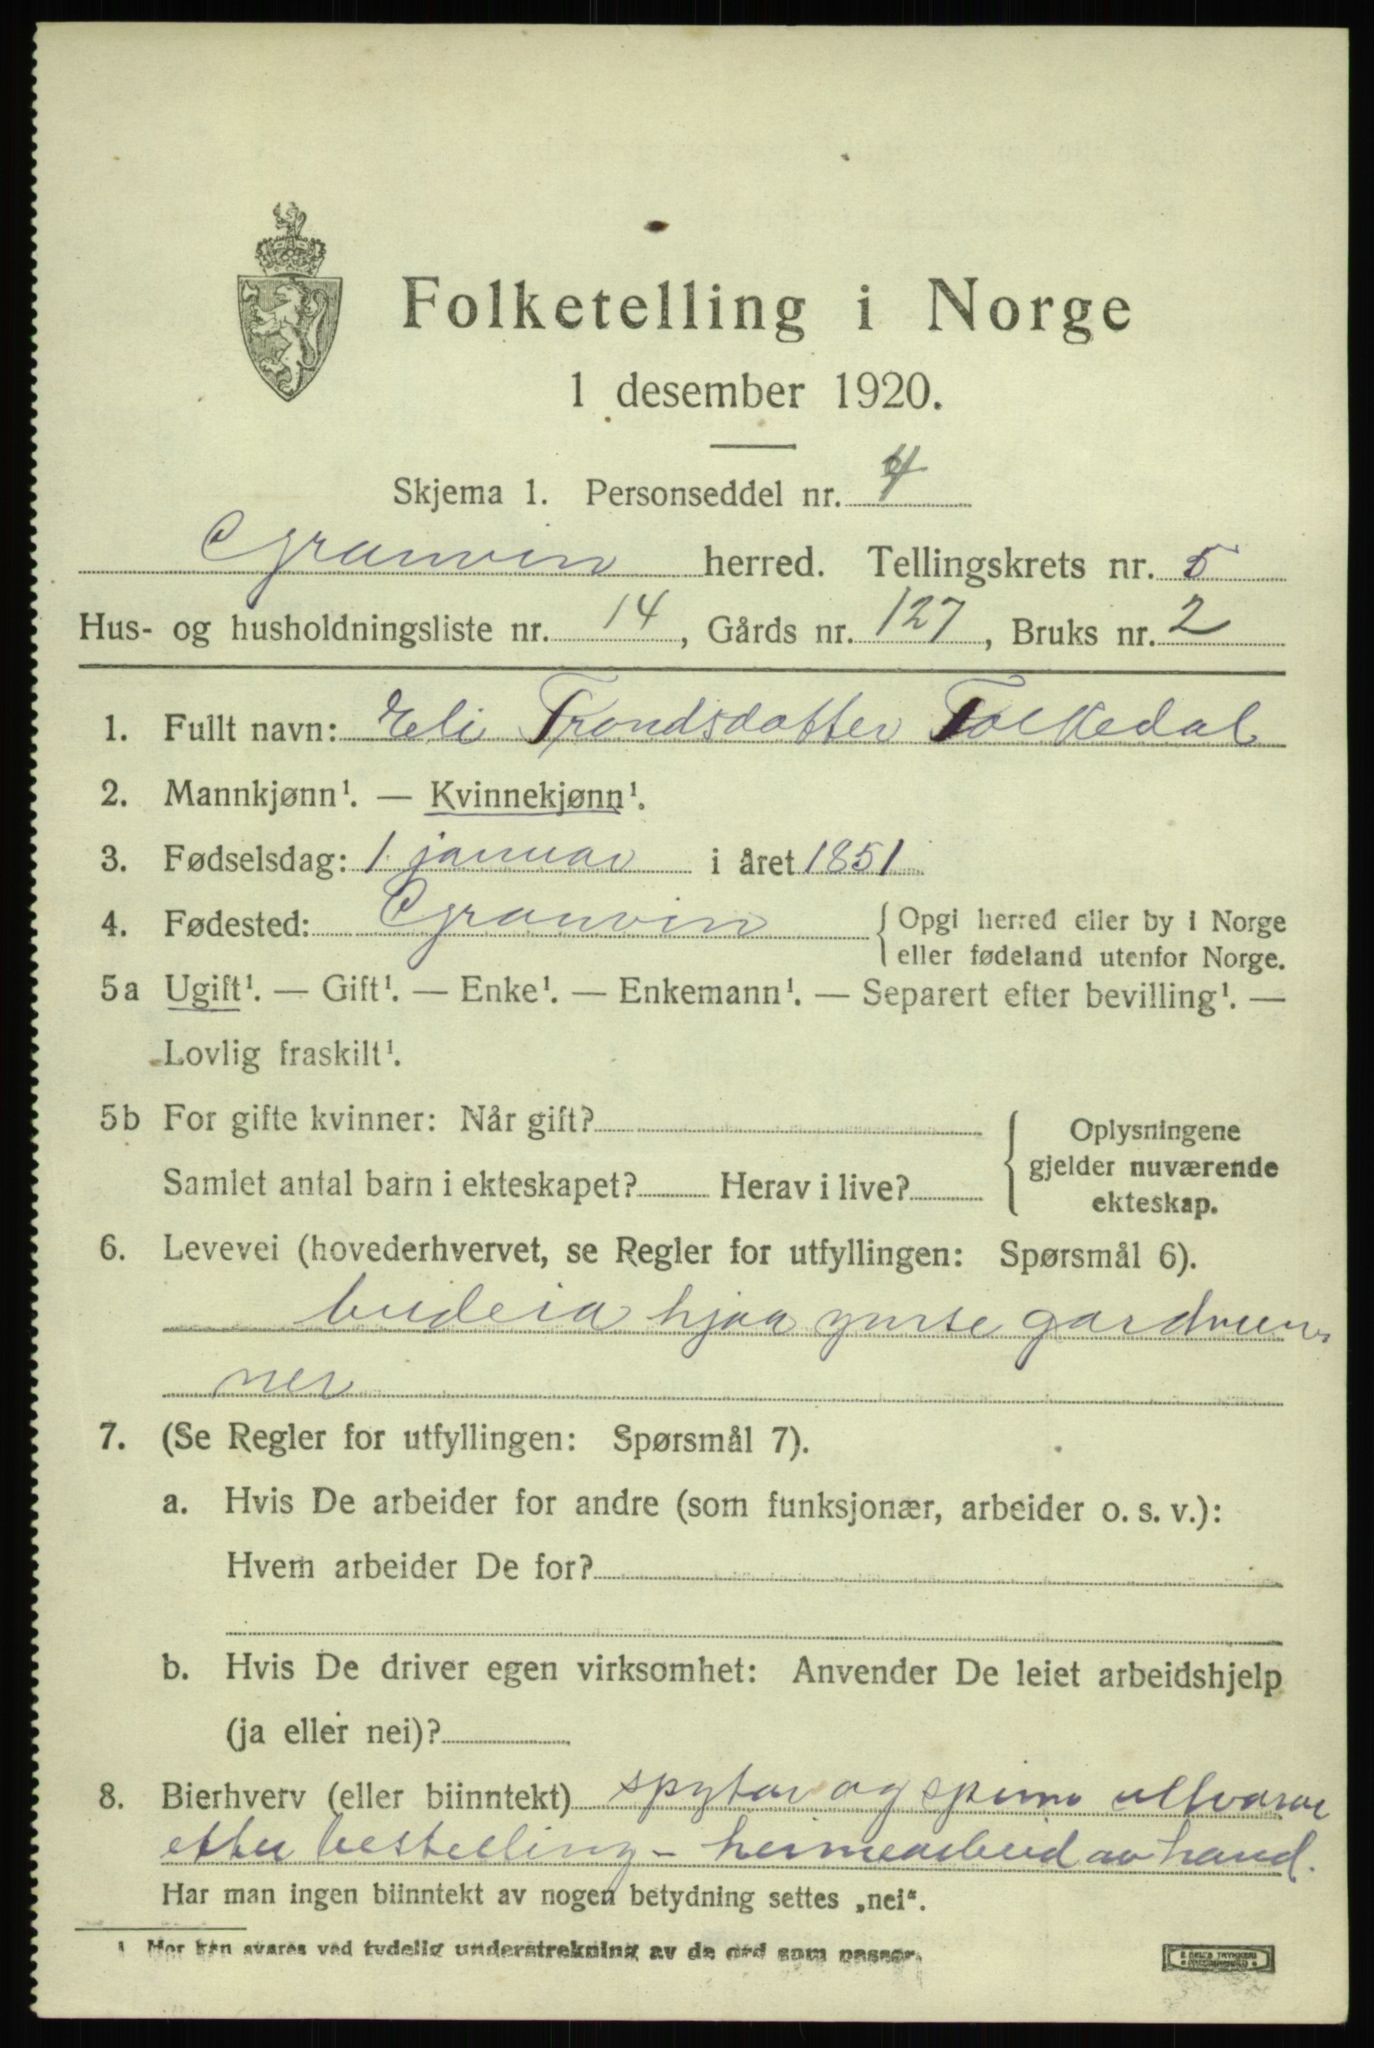 Folketelling i Norge
1 desember 1920.
Skjema 1. Personseddel nr. 4
Granvin herred. Tellingskrets nr. 5
Hus- og husholdningsliste nr. 14, Gårds nr. 127, Bruks nr. 2
1. Fullt navn: Eli Trondsdotter Folkedal
2. Mannkjønn¹. — Kvinnekjønn¹.
3. Fødselsdag: 1. januar i året 1851
4. Fødested: Granvin { Opgi herred eller by i Norge
eller fødeland utenfor Norge.
5a Ugift¹. — Gift¹. — Enke¹. — Enkemann¹. — Separert efter bevilling¹. —
Lovlig fraskilt¹.
5b For gifte kvinner: Når gift?
Samlet antal barn i ekteskapet? Herav i live?
Oplysningene
gjelder nuværende
ekteskap.
6. Levevei (hovederhvervet, se Regler for utfyllingen: Spørsmål 6).
budeia hjaa ymse gardbrun-
ner
7. (Se Regler for utfyllingen: Spørsmål 7).
a. Hvis De arbeider for andre (som funksjonær, arbeider o. s. v.):
Hvem arbeider De for?
b. Hvis De driver egen virksomhet: Anvender De leiet arbeidshjelp
(ja eller nei)?
8. Bierhverv (eller biinntekt) og ullvarar
etter bestelling - heimearbeid av hand.
Har man ingen biinntekt av nogen betydning settes „nei“.
¹ Her kan svares ved tydelig understrekning av de ord som passer.